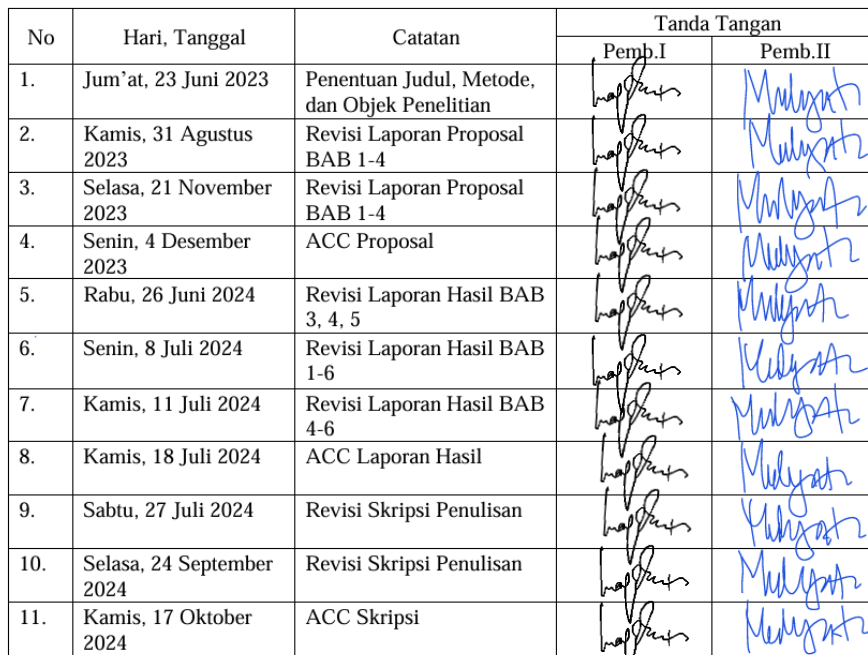 No Hari, Tanggal Catatan Tanda Tangan
Pemb.I Pemb.II
1. Jum’at, 23 Juni 2023 Penentuan Judul, Metode,
dan Objek Penelitian
2. Kamis, 31 Agustus Revisi Laporan Proposal
2023 BAB 1-4
3. Selasa, 21 November Revisi Laporan Proposal
2023 BAB 1-4
4. Senin, 4 Desember ACC Proposal
2023
5. Rabu, 26 Juni 2024 Revisi Laporan Hasil BAB
3, 4, 5
6. Senin, 8 Juli 2024 Revisi Laporan Hasil BAB
1-6
7. Kamis, 11 Juli 2024 Revisi Laporan Hasil BAB
4-6
8. Kamis, 18 Juli 2024 ACC Laporan Hasil
9. Sabtu, 27 Juli 2024 Revisi Skripsi Penulisan
10. Selasa, 24 September Revisi Skripsi Penulisan
2024
11. Kamis, 17 Oktober ACC Skripsi
2024